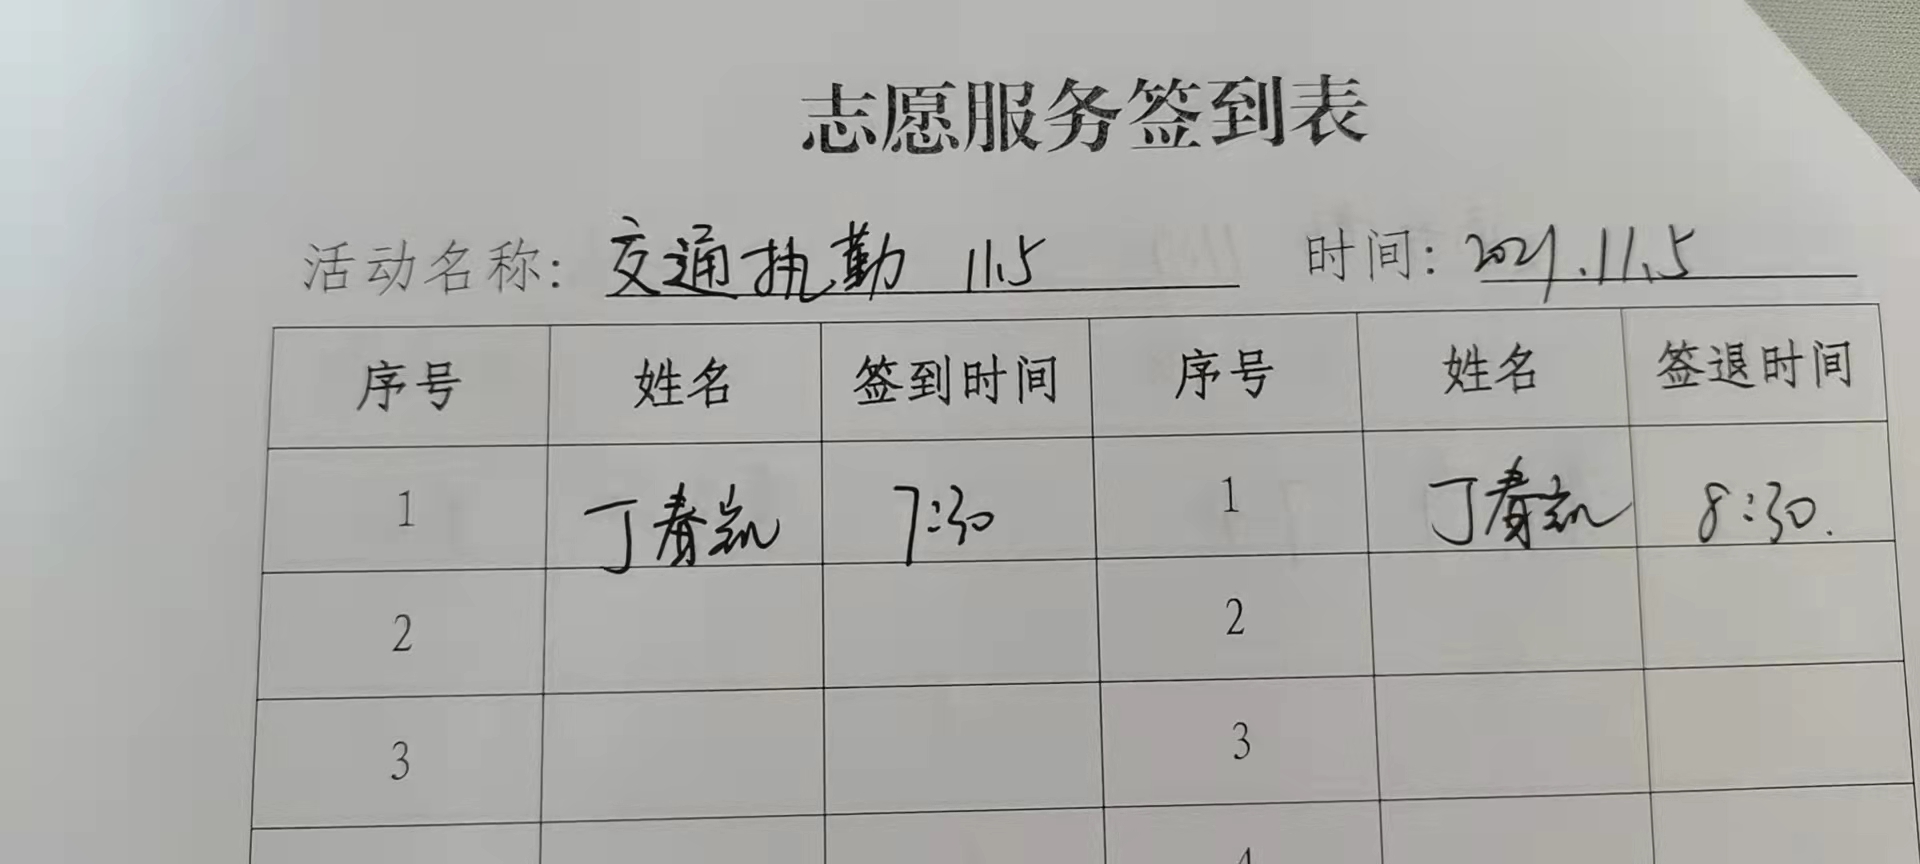 志愿服务签到表
活动名称: 交通执勤 11.5 时间: 2021.11.5
序号 姓名 签到时间 序号 姓名 签退时间
1 丁春凯 7:30 1 丁春凯 8:30.
2 2
3 3
4